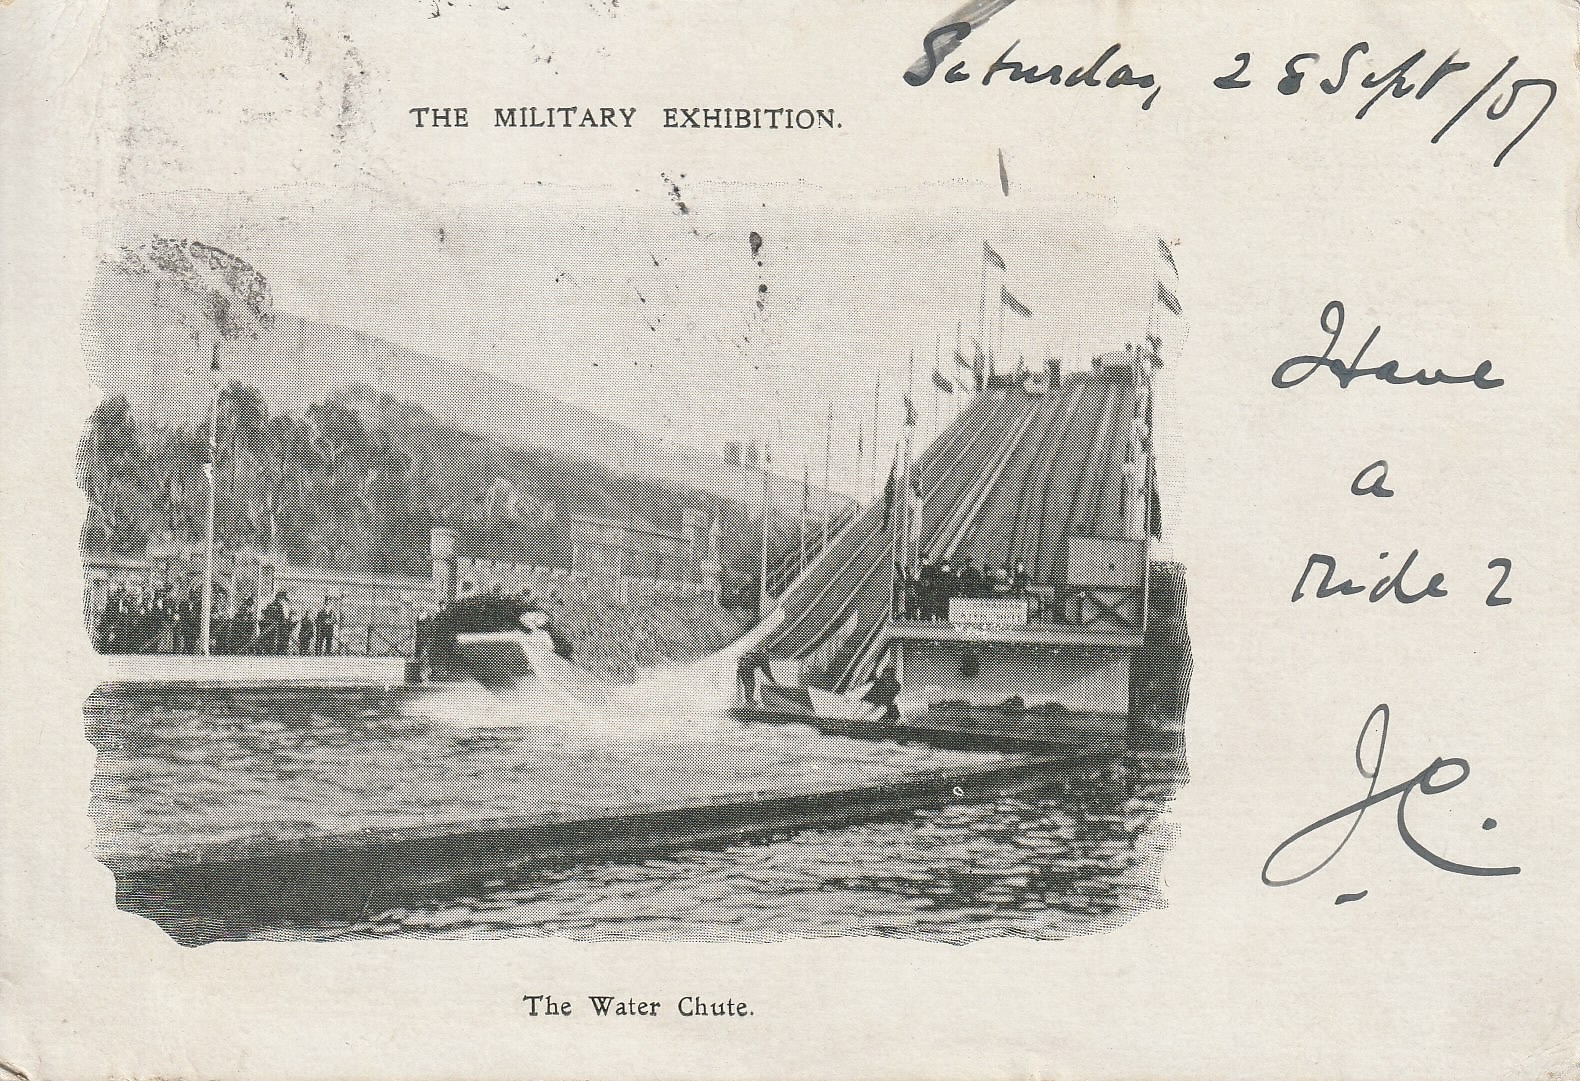 Saturday, 28 Sept /07
THE MILITARY EXHIBITION.
Have
a
ride ?
JC.
The Water Chute.